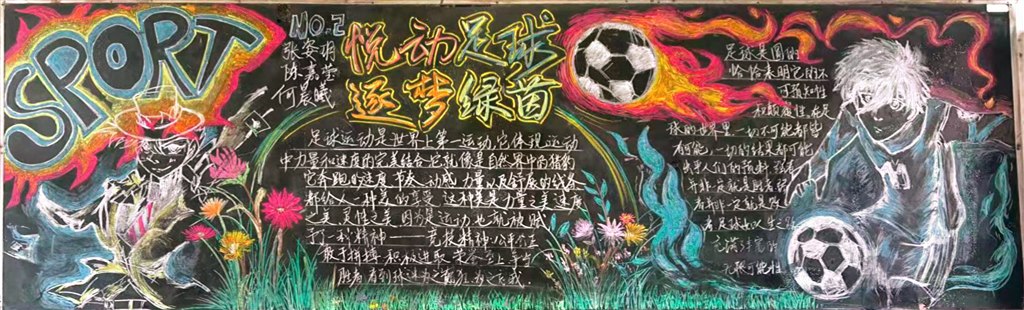 SPORT
NO.2
张
陈嘉莹
何晨曦
悦动足球
逐梦绿茵
足球运动是世界上第一运动,它体现运动
中力量和速度的完美结合,它就像是自然界中的猎豹
它奔跑的速度 节奏 动感 力量以及舒展的线条
都给人一种美的享受 这种美是力量之美 速度
之美 灵性之美 因为是运动 也就被赋
予了一种精神——竞技精神 公平公正
敢于拼搏 积极进取 荣誉至上 享受
胜者 看到球迷
足球是圆的
恰恰表明它的不
可预知性
和颠覆性 在足
球的世界里一切不可能都皆
有可能,一切的结果都可能
出乎人们的预料 强者
并非一定就是强者 弱
者并非一定就是败
者 足球
无限可能性